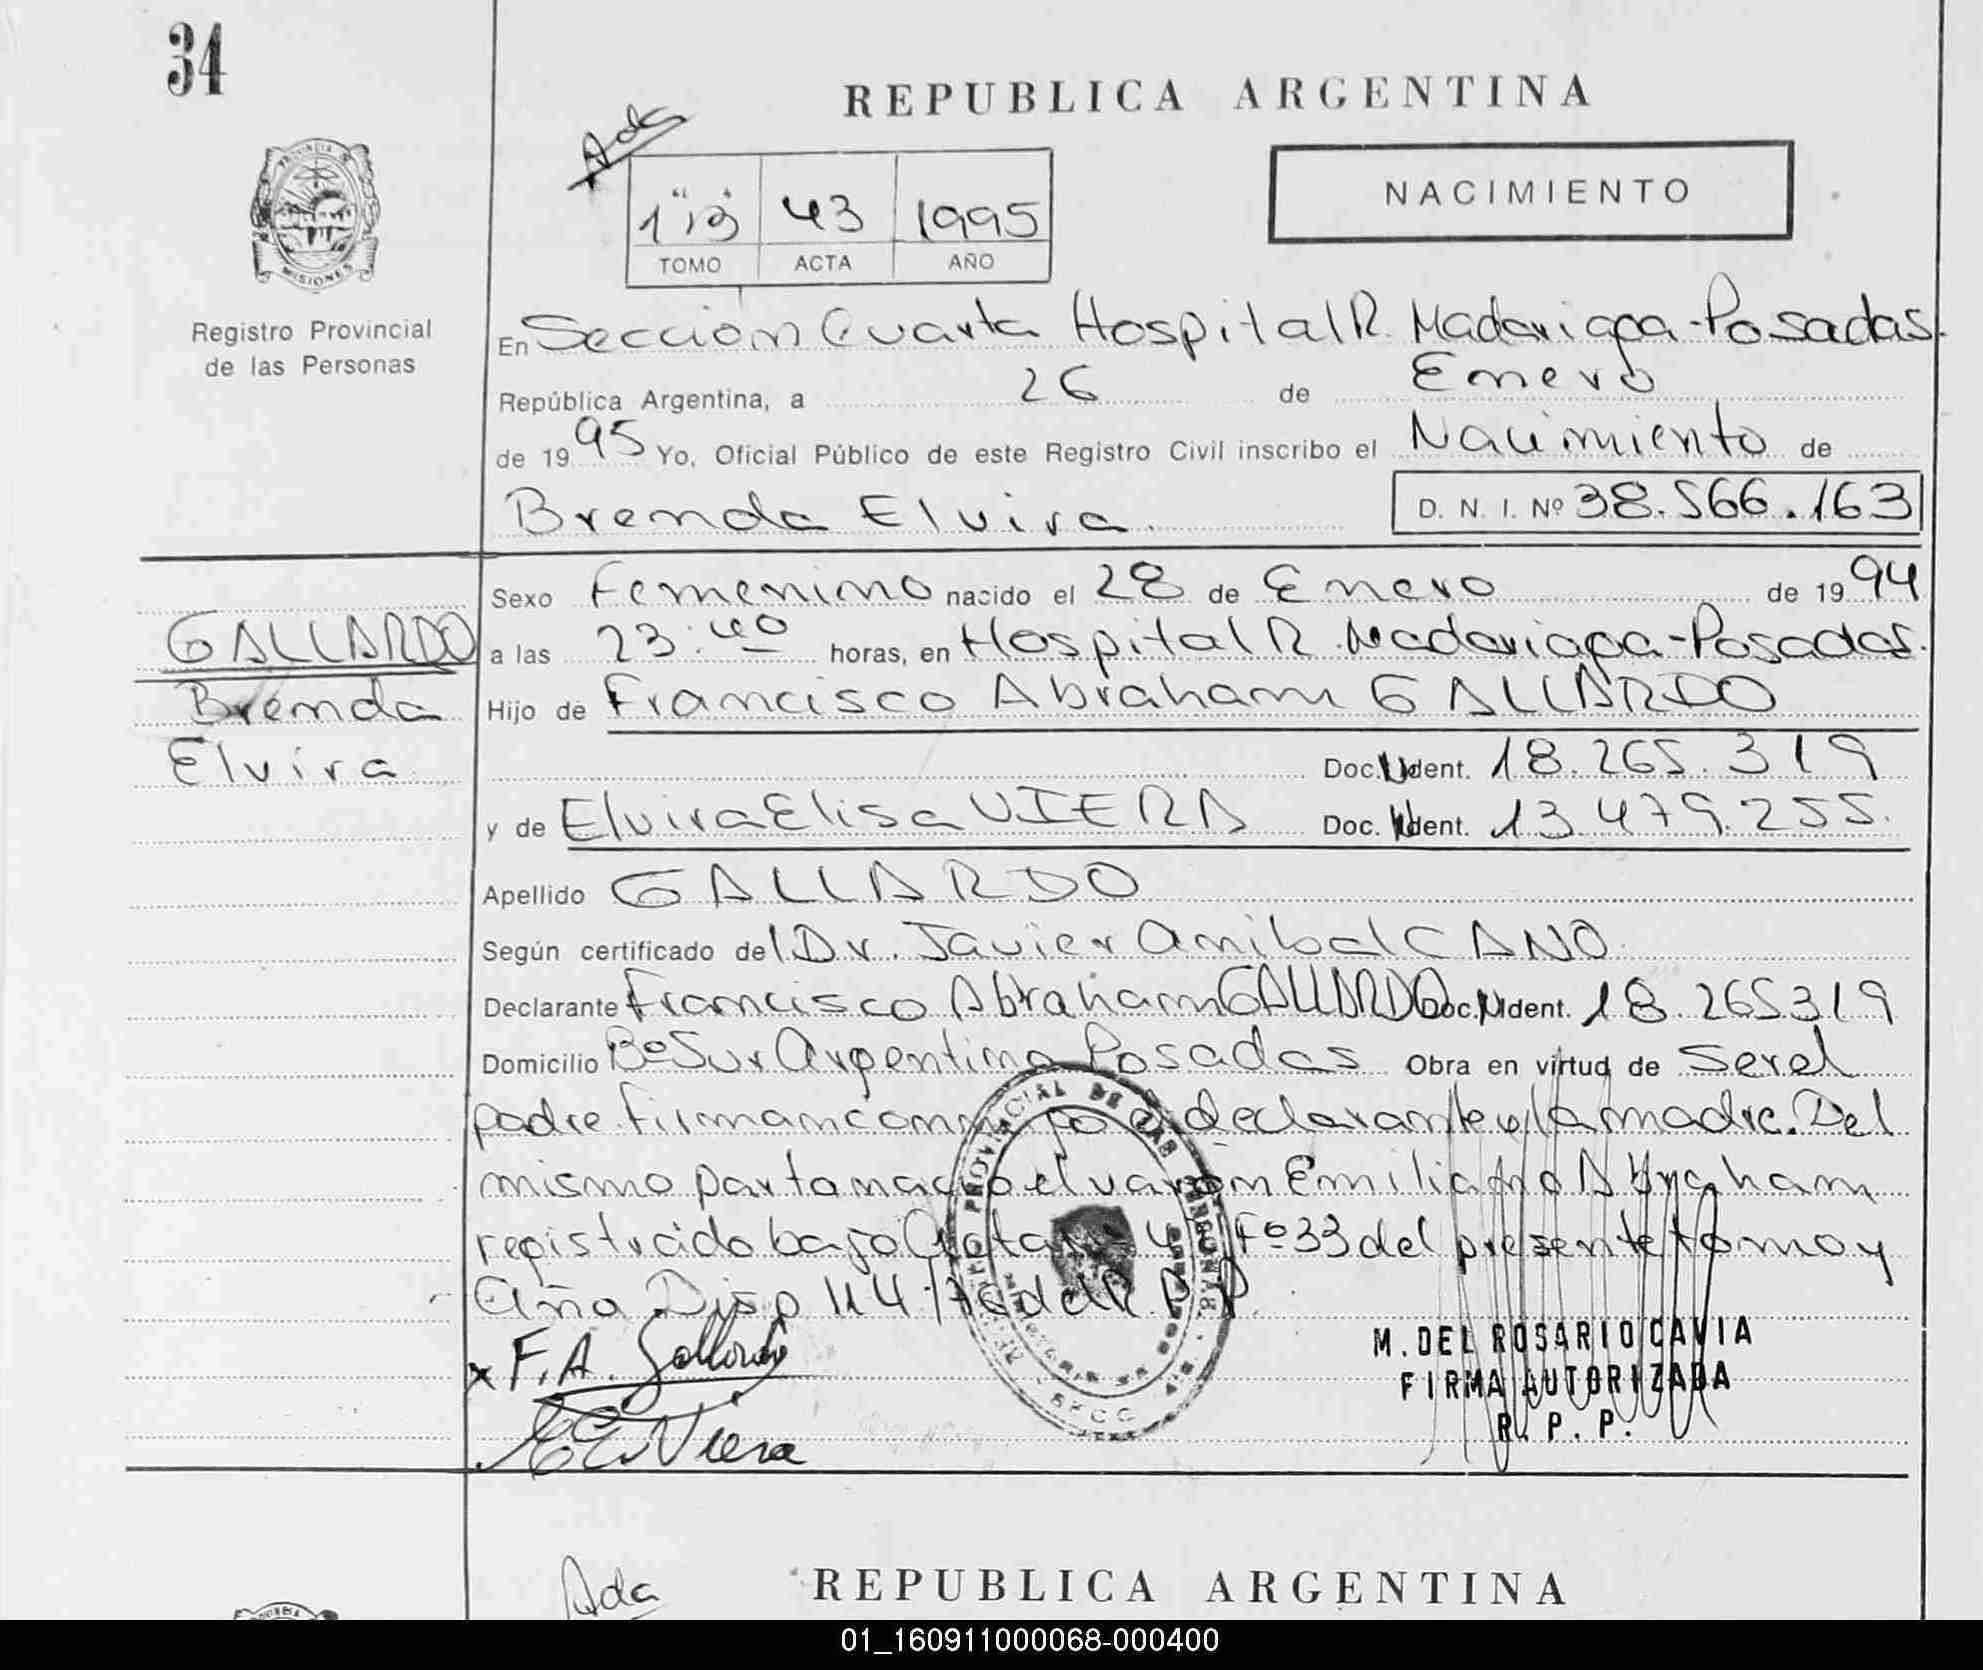 34
REPUBLICA ARGENTINA
Ada
NACIMIENTO
1 "B" 43 1995
TOMO ACTA AÑO
PROVINCIA DE MISIONES
Registro Provincial
de las Personas
En Sección Cuarta Hospital R. Madariaga-Posadas.
República Argentina, a 26 de Enero
de 1995 Yo, Oficial Público de este Registro Civil inscribo el Nacimiento de
Brenda Elvira. D. N. I. Nº 38.566.163
Sexo Femenino nacido el 28 de Enero de 1994
GALLARDO
a las 23:40 horas, en Hospital R. Madariaga-Posadas.
Brenda
Hijo de Francisco Abraham GALLARDO
Elvira
Doc. Ident. 18.265.319
y de Elvira Elisa VIERA Doc. Ident. 13.479.255.
Apellido GALLARDO
Según certificado del Dr. Javier Anibal CANO.
Declarante Francisco Abraham GALLARDO Doc. Ident. 18.265319
Domicilio Bº Sur Argentino Posadas Obra en virtud de ser el
padre. Firman conmigo el declarante y la madre. Del
mismo parto nació el varón Emiliano Abraham
registrado bajo Acta Fº 33 del presente tomo y
año. Disp 114/76 del R.P.P.
F.A. Gallardo
M. DEL ROSARIO CAVIA
FIRMA AUTORIZADA
R. P. P.
E E Viera
Ada
REPUBLICA ARGENTINA
01_160911000068-000400